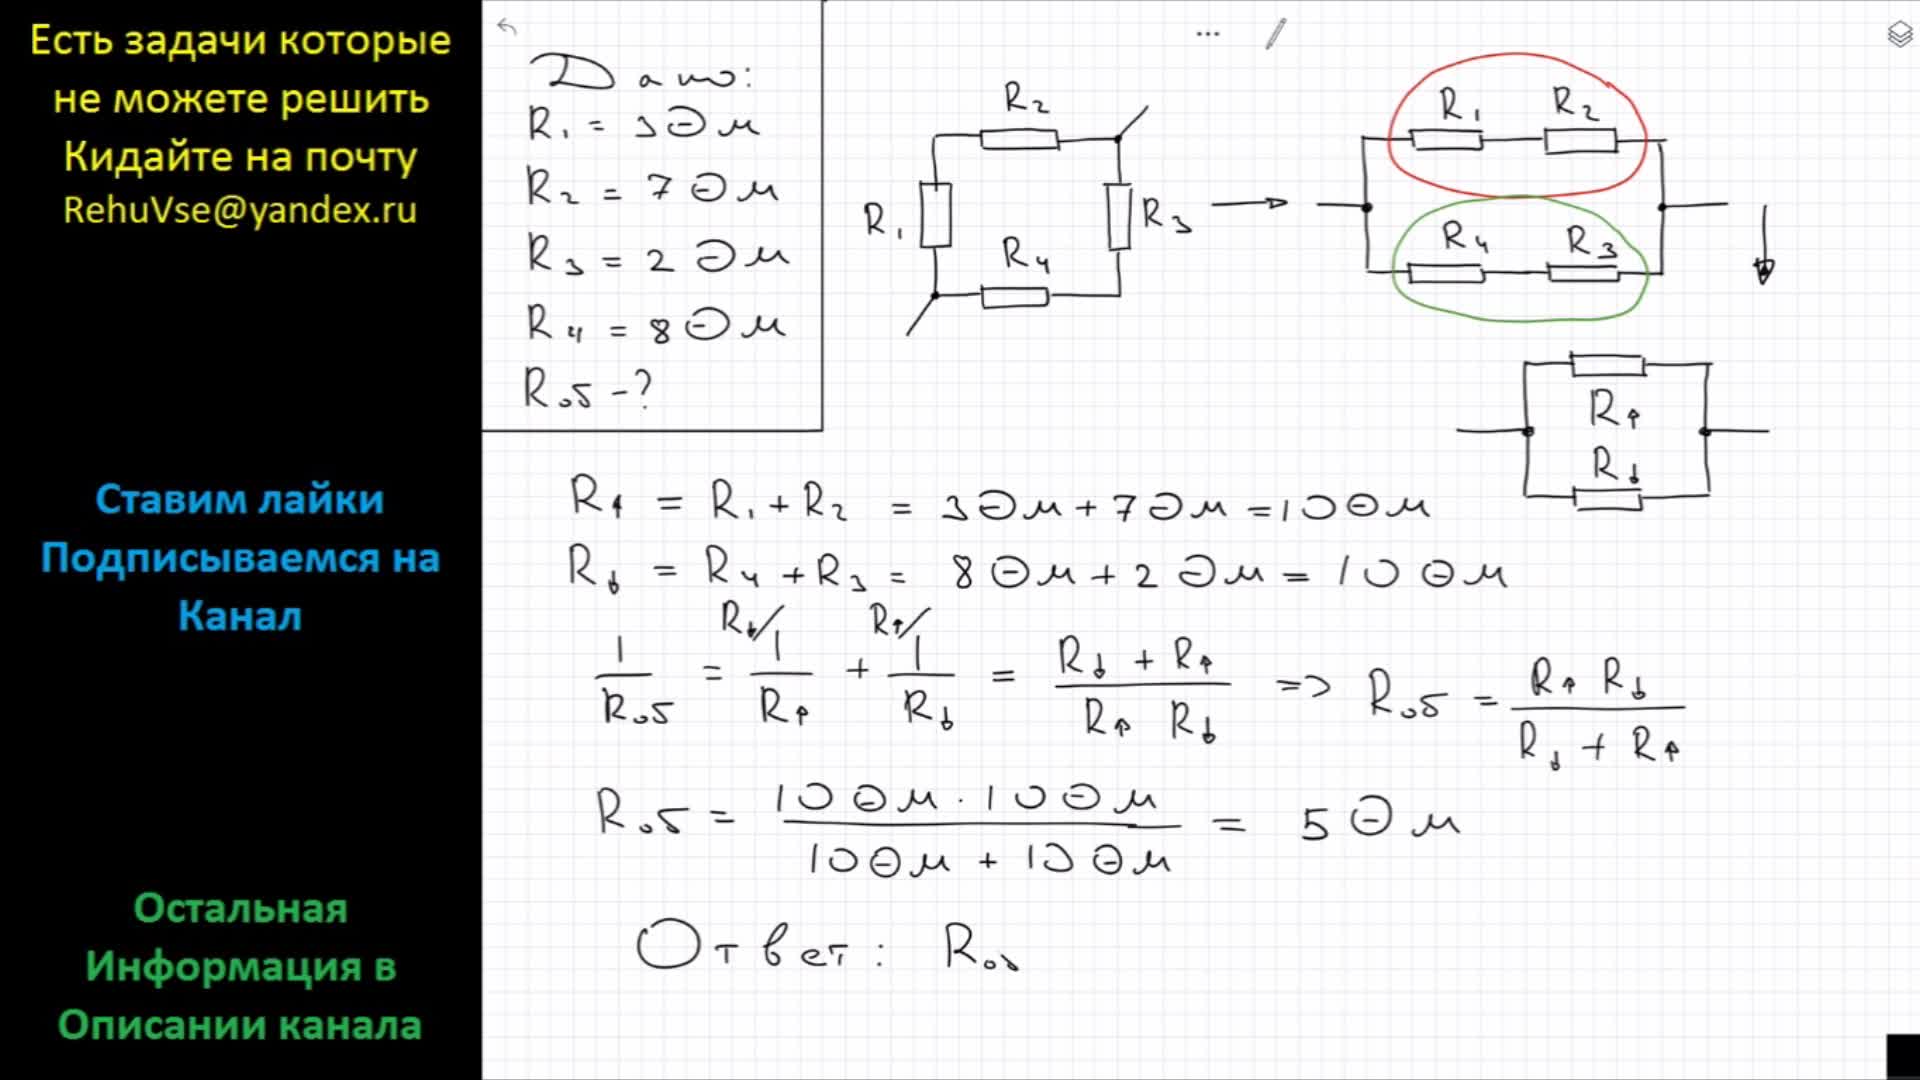 Есть задачи которые
не можете решить
Кидайте на почту
RehuVse@yandex.ru
Ставим лайки
Подписываемся на
Канал
Остальная
Информация в
Описании канала
Дано:
R₁ = 3 Ом
R₂ = 7 Ом
R₃ = 2 Ом
R₄ = 8 Ом
Rоб - ?
R₂
R₁
R₃
R₄
R₁ R₂
R₄ R₃
R↑
R↓
R↑ = R₁ + R₂ = 3 Ом + 7 Ом = 10 Ом
R↓ = R₄ + R₃ = 8 Ом + 2 Ом = 10 Ом
R↓/ R↑/
1/Rоб = 1/R↑ + 1/R↓ = (R↓ + R↑)/(R↑ R↓) => Rоб = (R↑ R↓)/(R↓ + R↑)
Rоб = (10 Ом · 10 Ом)/(10 Ом + 10 Ом) = 5 Ом
Ответ: Rо